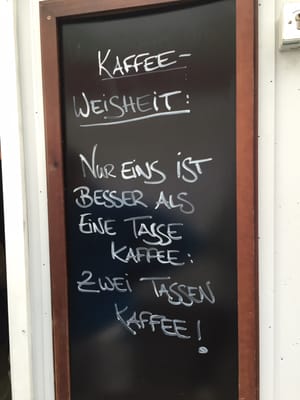 KAFFEE-
WEISHEIT:
NUR EINS IST
BESSER ALS
EINE TASSE
KAFFEE:
ZWEI TASSEN
KAFFEE!